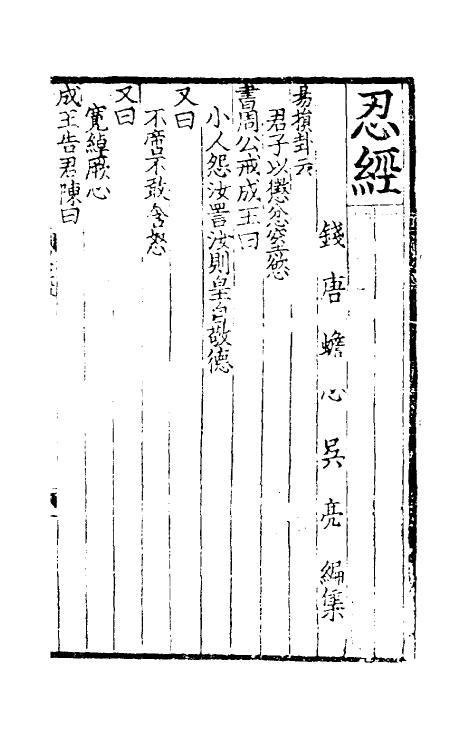 忍經
錢唐蟾心吳亮編集
易損卦云
君子以懲忿窒慾
書周公戒成王曰
小人怨汝詈汝則皇自敬德
又曰
不啻不敢含怒
又曰
寬綽厥心
成王告君陳曰